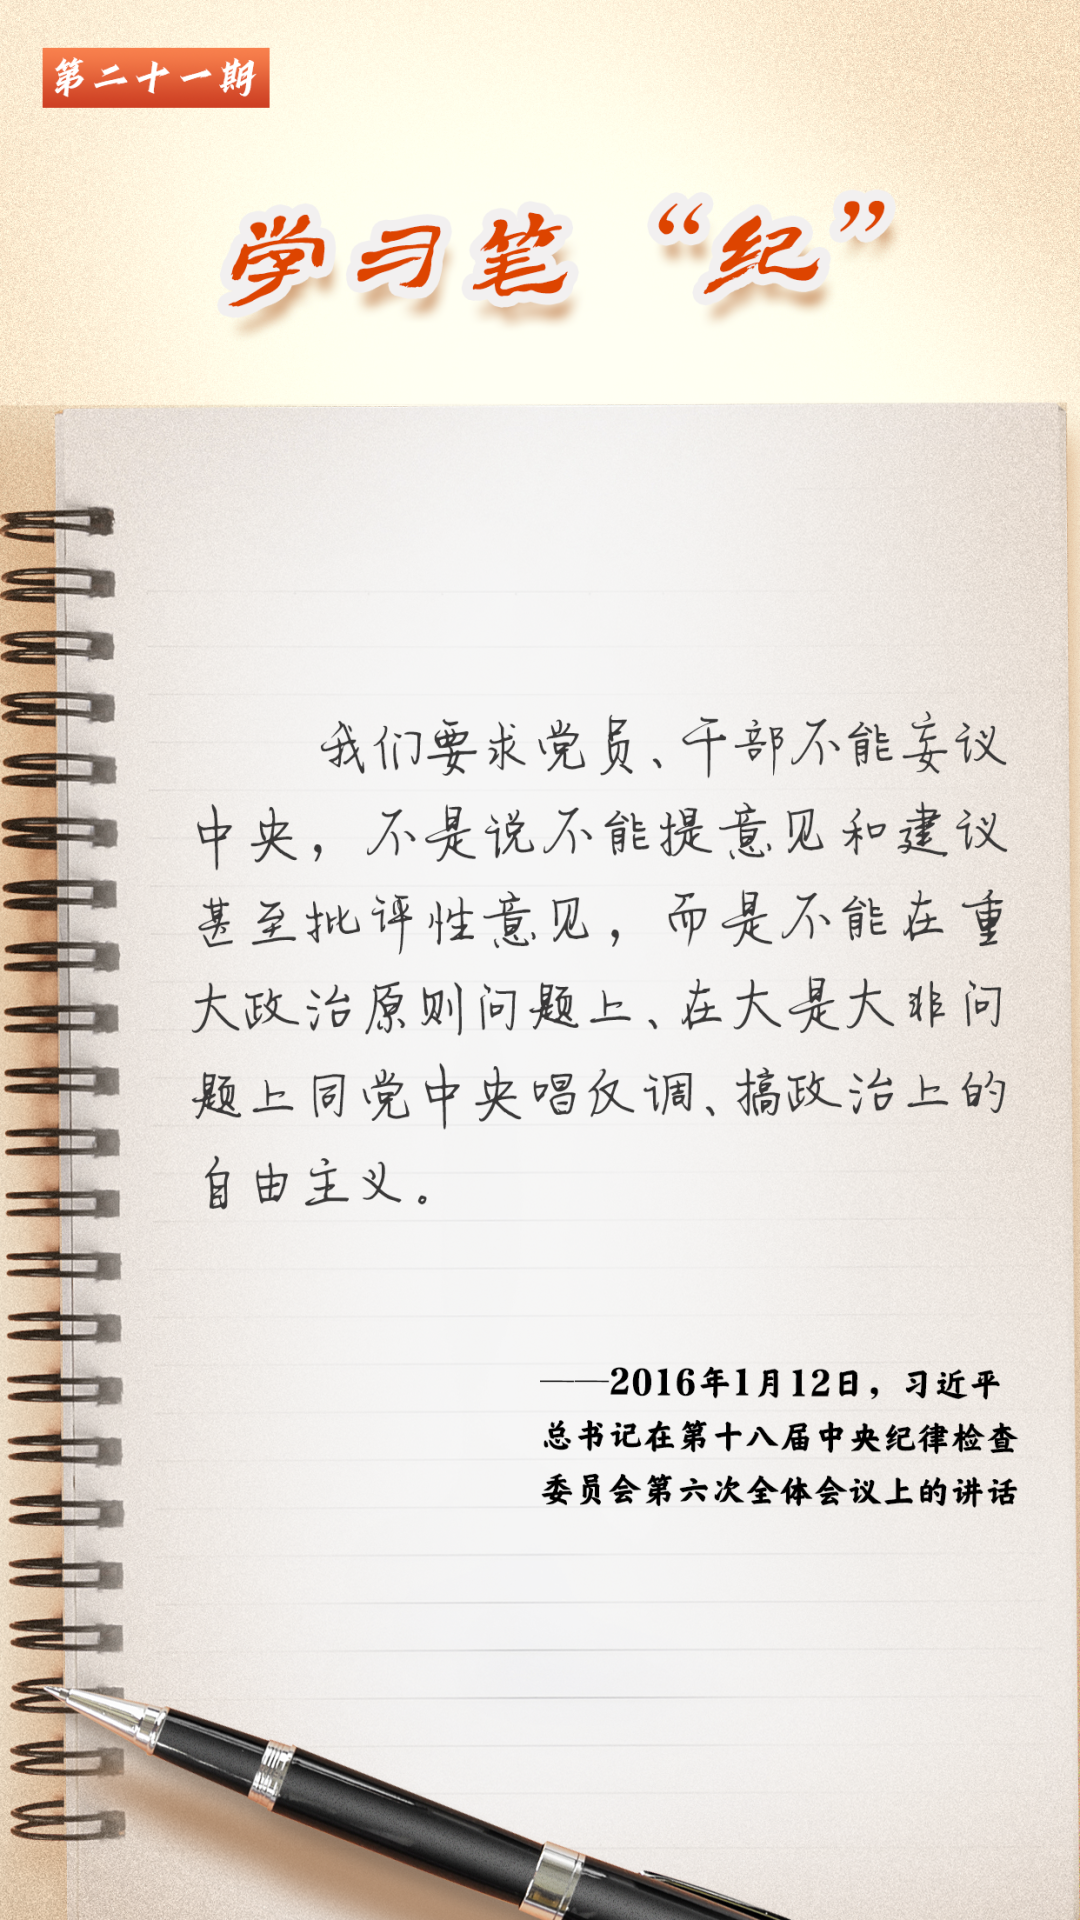 第二十一期
学习笔“纪”
我们要求党员、干部不能妄议
中央，不是说不能提意见和建议
甚至批评性意见，而是不能在重
大政治原则问题上、在大是大非问
题上同党中央唱反调、搞政治上的
自由主义。
——2016年1月12日，习近平
总书记在第十八届中央纪律检查
委员会第六次全体会议上的讲话